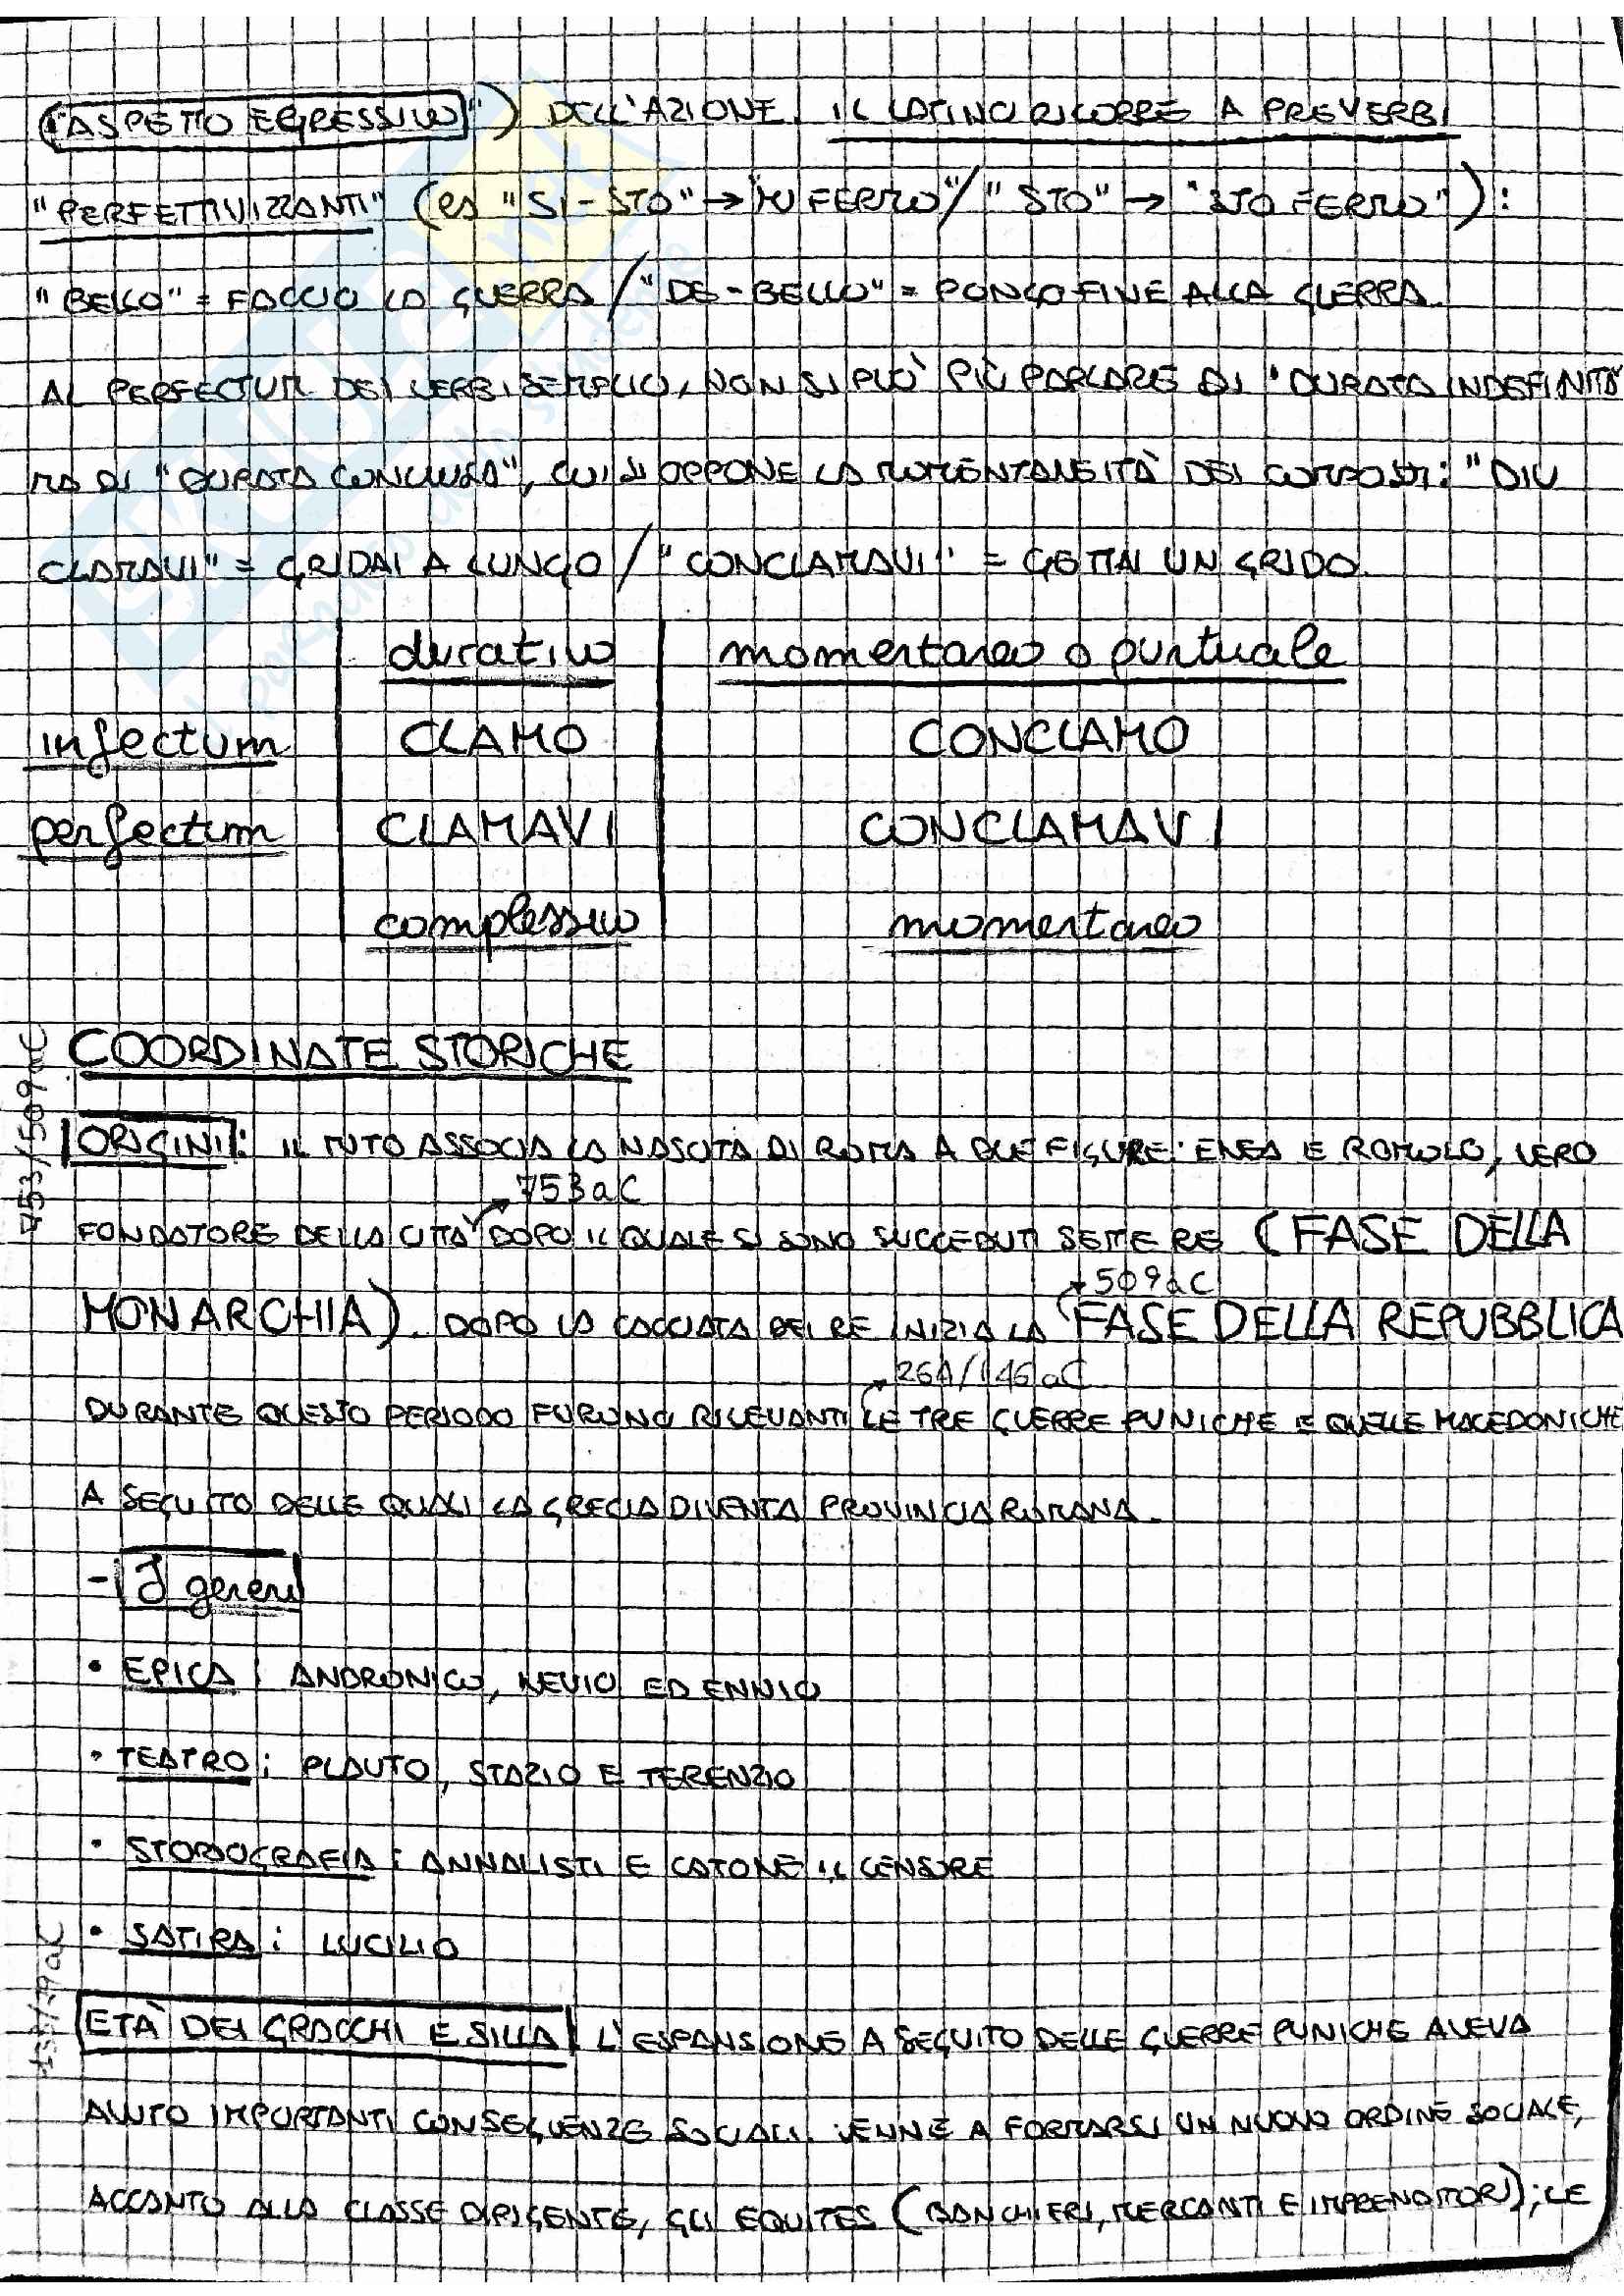 ("ASPETTO EGRESSIVO") DELL'AZIONE. IL LATINO RICORRE A PREVERBI
"PERFETTIVIZZANTI" (es "SI-STO" → "MI FERMO" / "STO" → "STO FERMO"):
"BELLO" = FACCIO LA GUERRA / "DE-BELLO" = PONGO FINE ALLA GUERRA.
AL PERFECTUM DEI VERBI SEMPLICI, NON SI PUÒ PIÙ PARLARE DI "DURATA INDEFINITA"
MA DI "DURATA CONCLUSA", CUI SI OPPONE LA MOMENTANEITÀ DEI COMPOSTI: "DIU
CLAMAVI" = GRIDAI A LUNGO / "CONCLAMAVI" = GETTAI UN GRIDO.
durativo momentaneo o puntuale
infectum CLAMO CONCLAMO
perfectum CLAMAVI CONCLAMAVI
complessivo momentaneo
COORDINATE STORICHE
753/509 aC
ORIGINI: IL MITO ASSOCIA LA NASCITA DI ROMA A DUE FIGURE: ENEA E ROMOLO, VERO
→ 753 aC
FONDATORE DELLA CITTÀ DOPO IL QUALE SI SONO SUCCEDUTI SETTE RE (FASE DELLA
→ 509 aC
MONARCHIA). DOPO LA CACCIATA DEI RE INIZIA LA FASE DELLA REPUBBLICA
→ 264/146 aC
DURANTE QUESTO PERIODO FURONO RILEVANTI LE TRE GUERRE PUNICHE E QUELLE MACEDONICHE
A SEGUITO DELLE QUALI LA GRECIA DIVENTA PROVINCIA ROMANA.
- I generi
• EPICA: ANDRONICO, NEVIO ED ENNIO
• TEATRO: PLAUTO, STAZIO E TERENZIO
• STORIOGRAFIA: ANNALISTI E CATONE IL CENSORE
• SATIRA: LUCILIO
ETÀ DEI GRACCHI E SILLA: L'ESPANSIONE A SEGUITO DELLE GUERRE PUNICHE AVEVA
AVUTO IMPORTANTI CONSEGUENZE SOCIALI. VENNE A FORMARSI UN NUOVO ORDINE SOCIALE,
ACCANTO ALLA CLASSE DIRIGENTE, GLI EQUITES (BANCHIERI, MERCANTI E IMPRENDITORI); LE